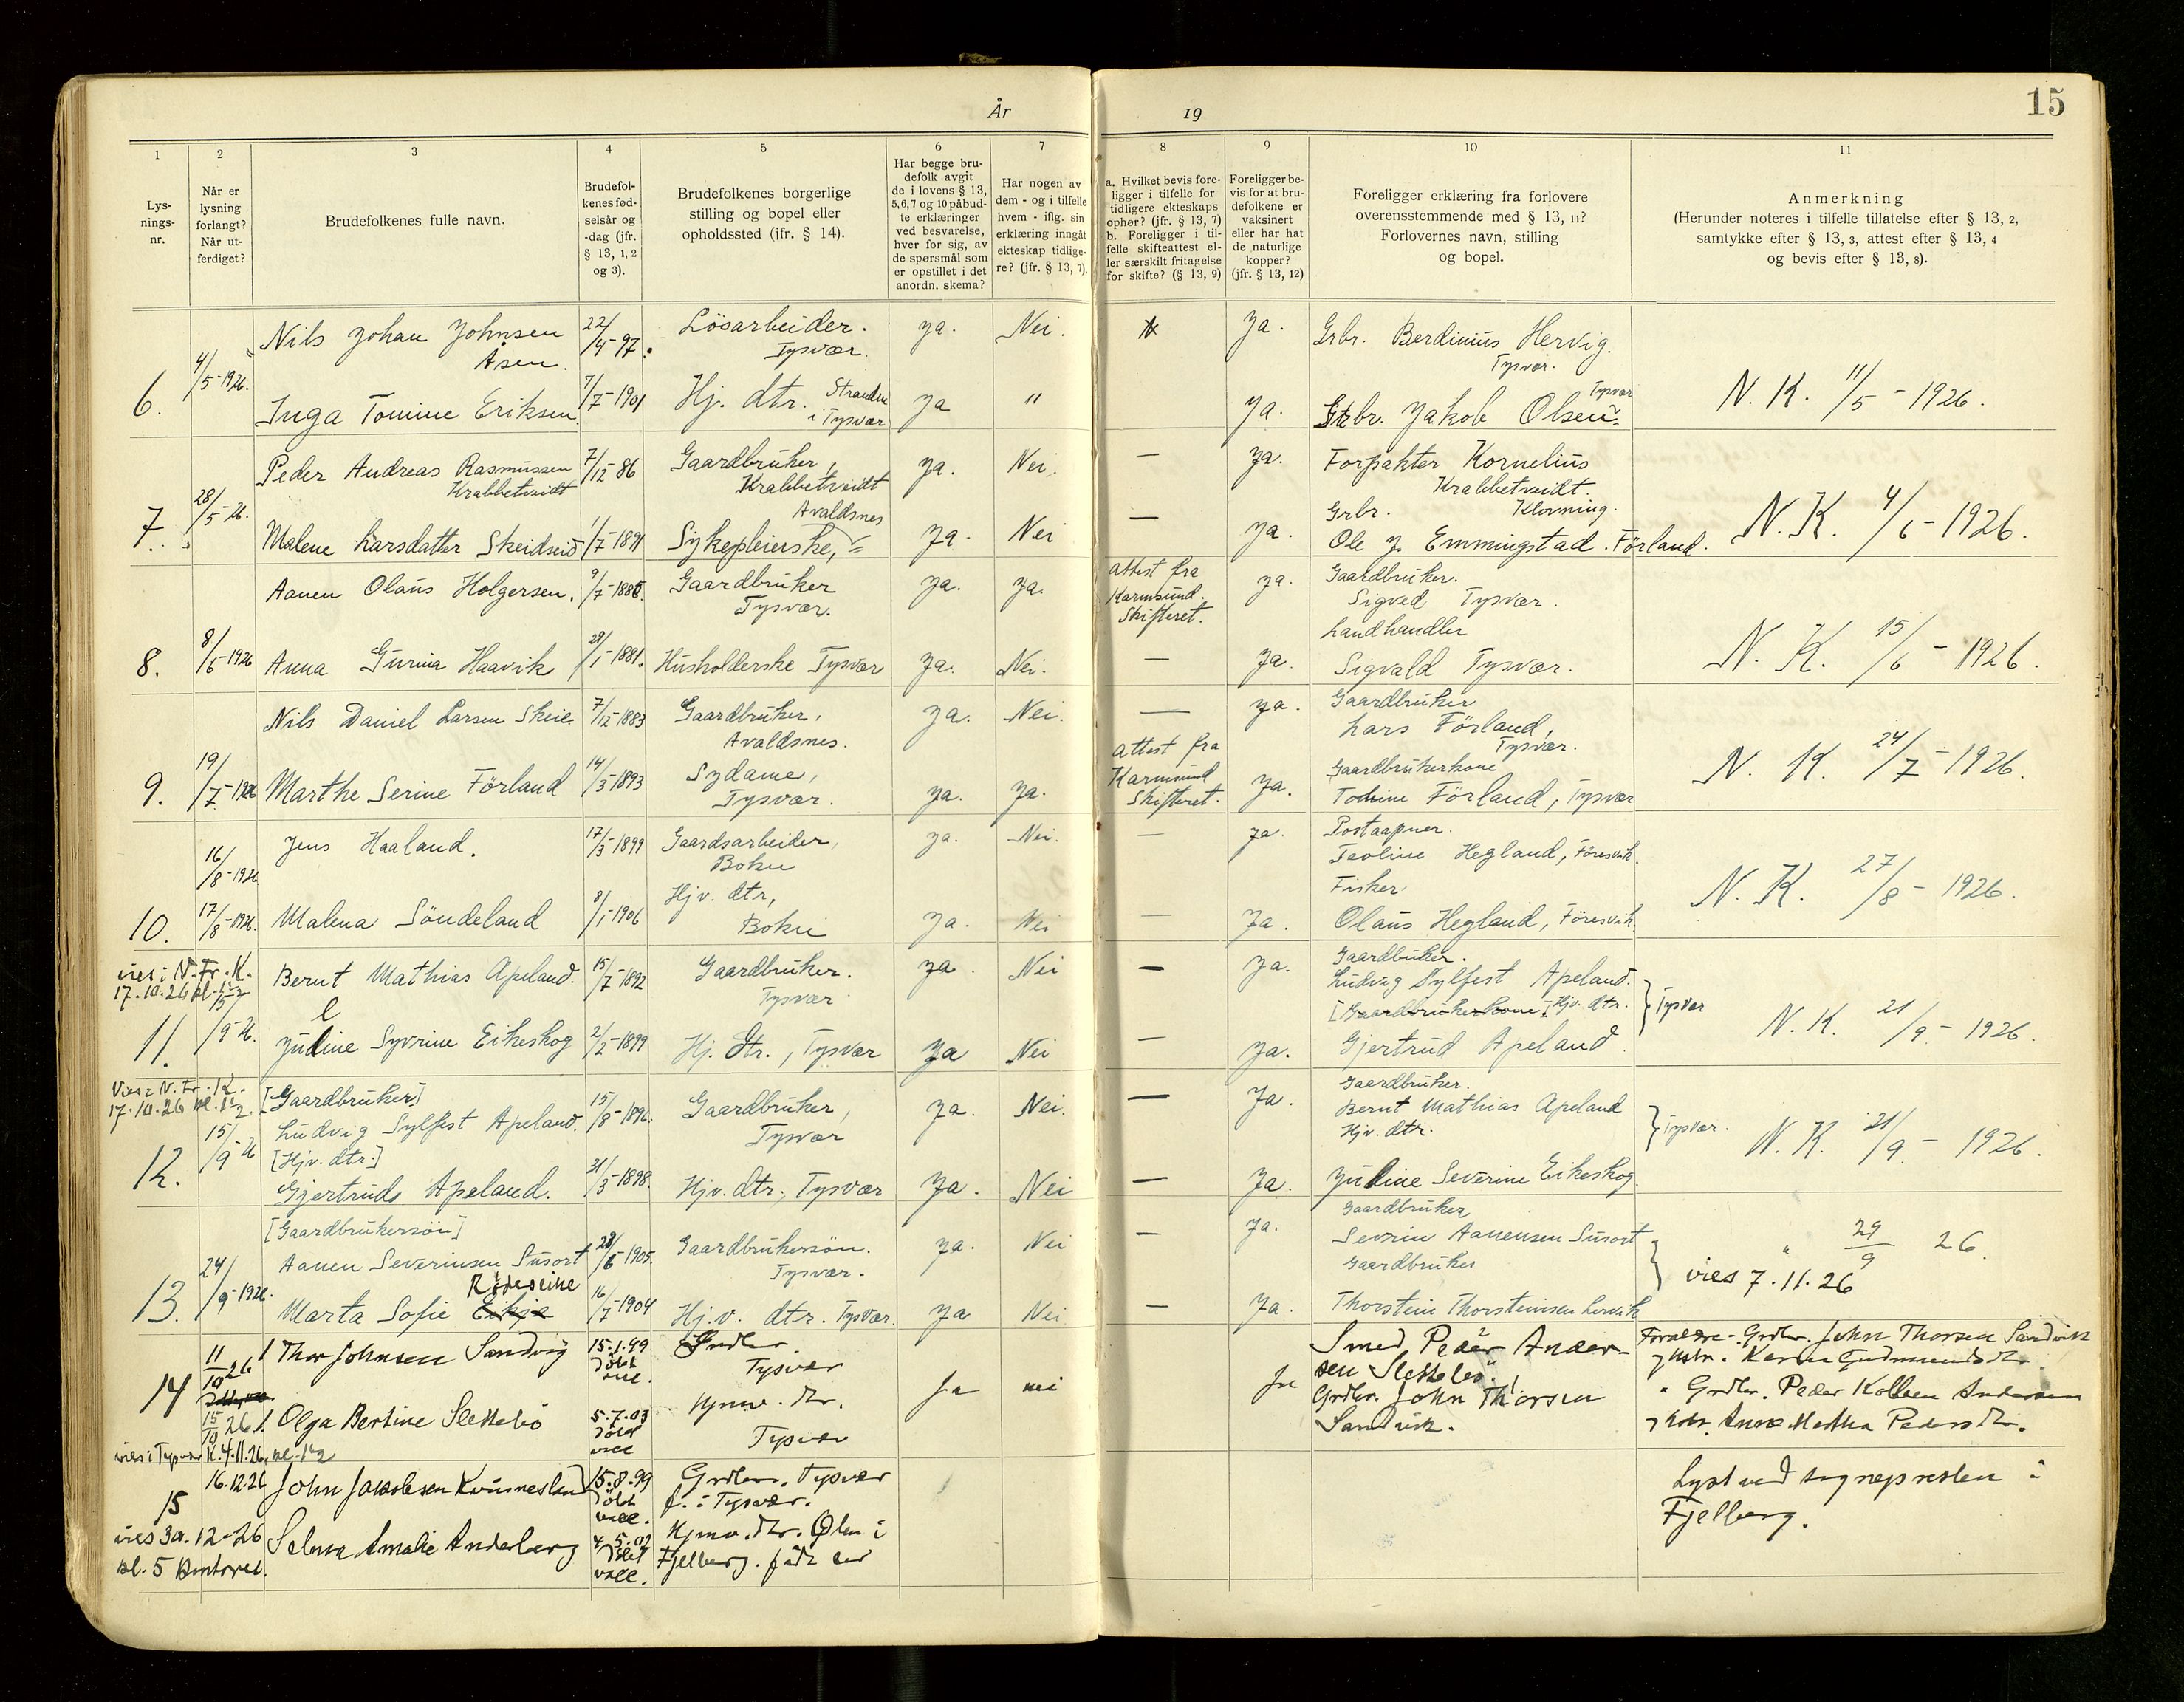 År 19
15
1
2
3
4
5
6
7
8
9
10
11
Lys-
nings-
nr.
Når er
lysning
forlangt?
Når ut-
ferdiget?
Brudefolkenes fulle navn.
Brudefol-
kenes fød-
selsår og
-dag (jfr.
§ 13, 1, 2
og 3).
Brudefolkenes borgerlige
stilling og bopel eller
opholdssted (jfr. § 14).
Har begge bru-
defolk avgit
de i lovens § 13,
5, 6, 7 og 10 påbud-
te erklæringer
ved besvarelse,
hver for sig, av
de spørsmål som
er opstillet i det
anordn. skema?
Har nogen av
dem - og i tilfelle
hvem - iflg. sin
erklæring inngåt
ekteskap tidlige-
re? (jfr. § 13, 7).
a. Hvilket bevis fore-
ligger i tilfelle for
tidligere ekteskaps
ophør? (jfr. § 13, 7)
b. Foreligger i til-
felle skifteattest el-
ler særskilt fritagelse
for skifte? (§ 13, 9)
Foreligger be-
vis for at bru-
defolkene er
vaksinert
eller har hat
de naturlige
kopper?
(jfr. § 13, 12)
Foreligger erklæring fra forlovere
overensstemmende med § 13, 11?
Forlovernes navn, stilling
og bopel.
Anmerkning
(Herunder noteres i tilfelle tillatelse efter § 13, 2,
samtykke efter § 13, 3, attest efter § 13, 4
og bevis efter § 13, 8).
6.
4/5-1926.
Nils Johan Johnsen
Åsen.
22/4-97.
Lösarbeider.
Tysvær.
ja.
Nei.
ja.
Grbr. Berdinius Hervig.
Tysvær.
Inga Tomine Eriksen.
7/7-1901
Hj. dtr. Stranden
i Tysvær
ja
"
ja.
Grbr. Jakob Olsen.
Tysvær
N. K. 11/5-1926.
7.
28/5-26.
Peder Andreas Rasmussen
Krabbetveidt
7/12-86
Gaardbruker,
Krabbetveidt
Avaldsnes
ja.
Nei.
—
ja.
Forpakter Kornelius
Krabbetveidt.
Malene Larsdatter Skeidseid
1/7-1891
Sykepleierske,
ja.
Nei
—
ja.
Grbr. Klovning.
Ole J. Emmingstad. Förland.
N. K. 4/6-1926.
8.
8/6-1926
Aanen Olaus Holgersen.
9/7-1885.
Gaardbruker
Tysvær.
ja.
ja.
attest fra
Karmsund.
Skifteret.
ja.
Gaardbruker.
Sigved Tysvær.
Anna Gurina Haavik
28/1-1881.
Husholderske Tysvær
ja.
Nei.
—
ja.
Landhandler
Sigvald Tysvær.
N. K. 15/6-1926.
9.
19/7-1926
Nils Daniel Larsen Skeie
7/12-1883
Gaardbruker,
Avaldsnes.
ja.
Nei.
—
ja.
Gaardbruker
Lars Förland,
Tysvær.
Marthe Serine Förland
14/3-1893
Sydame,
Tysvær.
ja.
ja.
attest fra
Karmsund
Skifteret.
ja.
Gaardbrukerkone
Tomine Förland, Tysvær
N. K. 24/7-1926.
10.
16/8-1926
17/8-1926.
Jens Haaland.
17/3-1899
Gaardsarbeider,
Bokn
ja.
Nei.
—
ja.
Postaapner.
Teoline Hegland, Föresvik.
Malena Söndeland
8/1-1906
Hjv. dtr,
Bokn
ja.
Nei
—
ja.
Fisker,
Olaus Hegland, Föresvik.
N. K. 27/8-1926.
vies i N. Fr. K.
17.10.26 kl. 1½
11.
15/9-26.
Bernt Mathias Apeland.
15/7-1892
Gaardbruker.
Tysvær
ja.
Nei
—
ja.
Gaardbruker.
Ludvig Sylfest Apeland.
Juline Syvrine Eikeskog
2/2-1899
Hj. dtr., Tysvær
ja
Nei
—
ja.
[Gaardbrukerkone] Hjv. dtr.
Gjertrud Apeland.
} Tysvær
N. K. 21/9-1926.
Vies i N. Fr. K.
17.10.26 kl. 1½.
12.
15/9-26
[Gaardbruker]
Ludvig Sylfest Apeland.
15/8-1896.
Gaardbruker,
Tysvær
ja.
Nei.
—
ja.
Gaardbruker.
Bernt Mathias Apeland
[Hjv. dtr.]
Gjertruds Apeland.
31/3-1898.
Hjv. dtr., Tysvær
ja.
Nei
—
ja.
Hjv. dtr.
Juline Severine Eikeskog.
} Tysvær.
N. K. 21/9-1926.
13.
24/9-1926.
[Gaardbrukersön]
Aanen Severinsen Susort
28/6-1905.
Gaardbrukersön.
Tysvær.
ja.
Nei
—
ja.
Gaardbruker
Severin Aanensen Susort
Marta Sofie Eikje
16/7-1904
Hj.v. dtr. Tysvær.
ja
Nei
—
ja.
Gaardbruker
Thorstein Thorsteinsen Lervik
" 29/9 26.
vies 7.11.26
14
11/10 26
15/10 26
Thor Johnsen Sandvig
15.1.99
Tysvær
Olga Bertine Slettebö
5.7.03
Hjmv. dtr.
Tysvær
ja
nei
ja
Smed Peder Ander-
sen Slettebö.
Grdbr. John Thorsen
Sandvik.
Forældre - Grdbr. John Thorsen Sandvik
" Grdbr. Peder Kolbein Andersen
Anna Martha Pedersdtr.
vies i Tysvær K. 4.11.26, kl. 1½
15
16.12.26
John Jakobsen Kvinnesland
15.8.99
Grdbr., Tysvær
f. i Tysvær.
vies 30.12-26
kl. 5 kontoret.
Selma Amalie Anderberg
4.5.02
Hjmv. dtr. Ølen i
Fjelberg.
Lyst ved sognepresten i
Fjelberg.